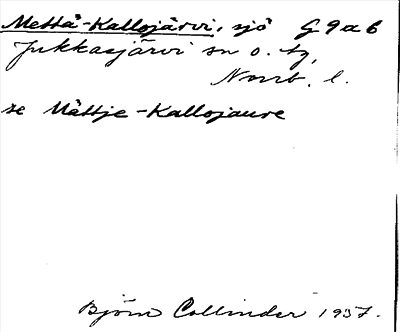 Mettä-Kallojärvi, sjö G 9 a b
Jukkasjärvi sn o. tg,
Norrb. l.
se Mättje-Kallojaure
Björn Collinder 1937.